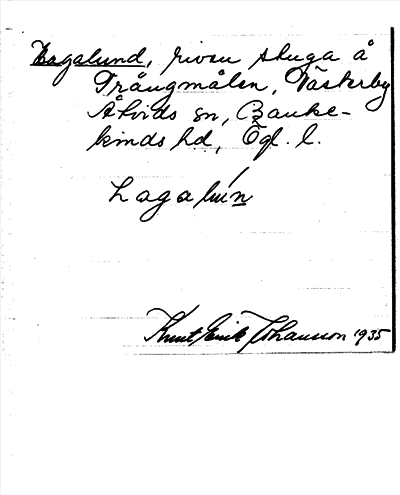 Hagalund, riven stuga å
Trångmålen, Västerby
Åtvids sn, Banke-
kinds hd, Ögl. l.
hagalun
Knut Erik Johansson 1935